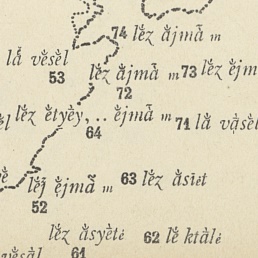 74 lę̆́z ăjmā̆ m
lā̆ vĕsĕl
53
lĕz ăjmā̆ m 73 lĕz ĕjm
72
ĕl lĕz ĕtyĕy, .. ĕjmā̆ m 71 lā̆ vạsĕl
64
lĕj ĕjmā̆ m 63 lĕz ăsiėt
52
lĕz ăsyĕtė 62 lĕ ktălė
vĕsăl 61